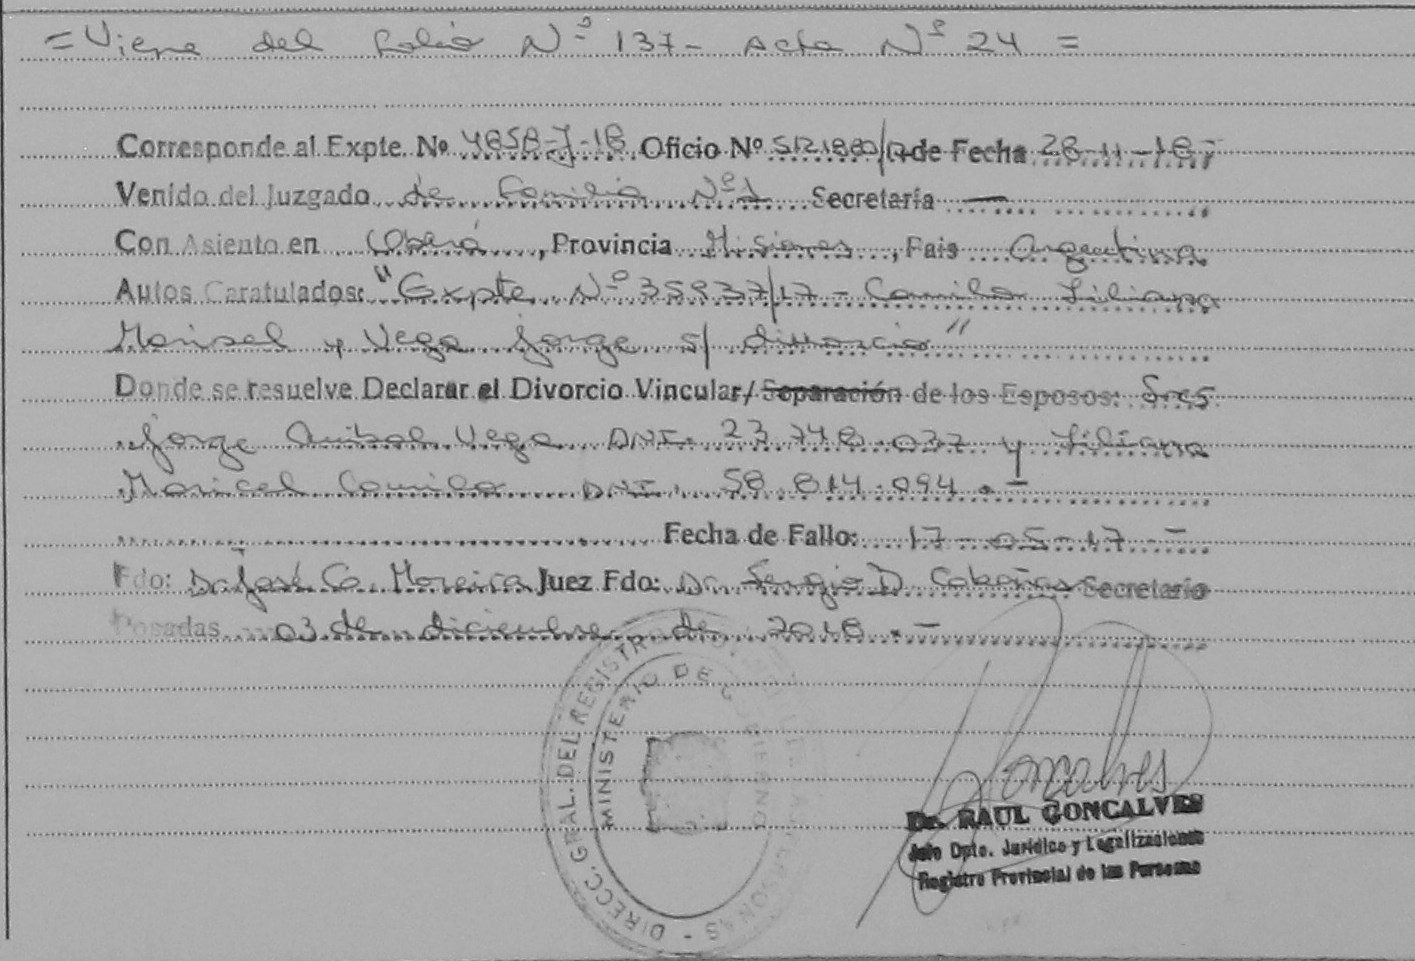 = Viene del folio Nº 137 - Acta Nº 24 =
Corresponde al Expte. Nº 4858-J-18 Oficio Nº de Fecha 28-11-18-
Venido del Juzgado de Familia Nº 1 Secretaria —
Con Asiento en Oberá, Provincia Misiones, Pais Argentina
Autos Caratulados: "Expte. Nº 35937/17 - Camila Liliana
Marisel y Vega Jorge s/ divorcio"
Donde se resuelve Declarar el Divorcio Vincular/ Separación de los Esposos: Sres
Jorge Anibal Vega DNI. 23.748.037 y Liliana
Maricel DNI. 58.814.094.-
Fecha de Fallo: 17-05-17-
Fdo: Dr José G. Moreira Juez Fdo: Dr. Sergio D. Cabañas Secretario
Posadas 03 de diciembre de 2018.-
DIRECC. GRAL. DEL REGISTRO PROVINCIAL DE LAS PERSONAS -
MINISTERIO DE GOBIERNO
Goncalves
Dr. RAUL GONCALVES
Jefe Dpto. Jurídico y Legalizaciones
Registro Provincial de las Personas